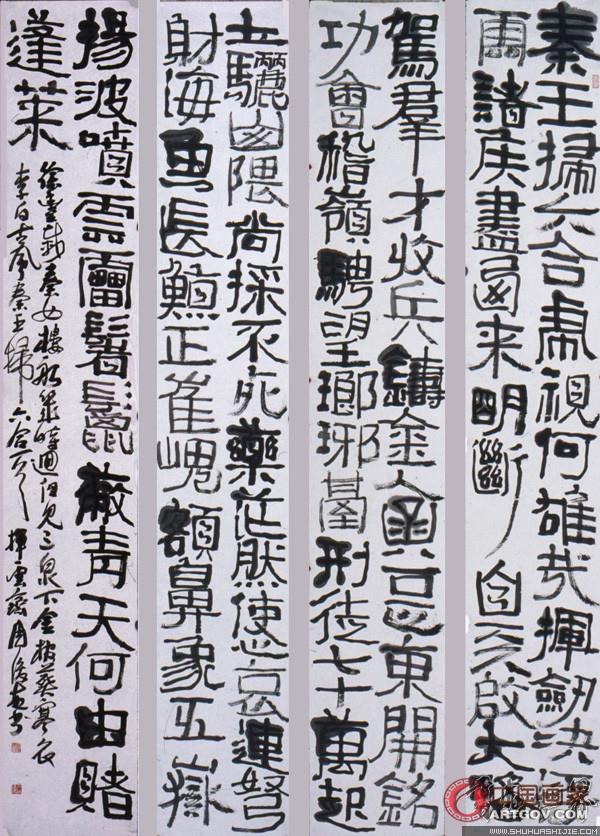 秦王掃六合虎視何雄哉揮劍決浮
雲諸侯盡西來明斷自天啟大略
駕羣才收兵鑄金人函谷正東開銘
功會稽嶺騁望瑯琊臺刑徒七十萬起
土驪山隈尚採不死藥茫然使心哀連弩
射海魚長鯨正崔嵬額鼻象五嶽
揚波噴雲雷鬐鬣蔽青天何由睹
蓬萊
徐巿載秦女樓船幾時迴但見三泉下金棺葬寒灰
李白古風秦王掃六合 揮雲齋周俊杰書
ARTGOV.COM
WWW.SHUHUASHIJIE.COM